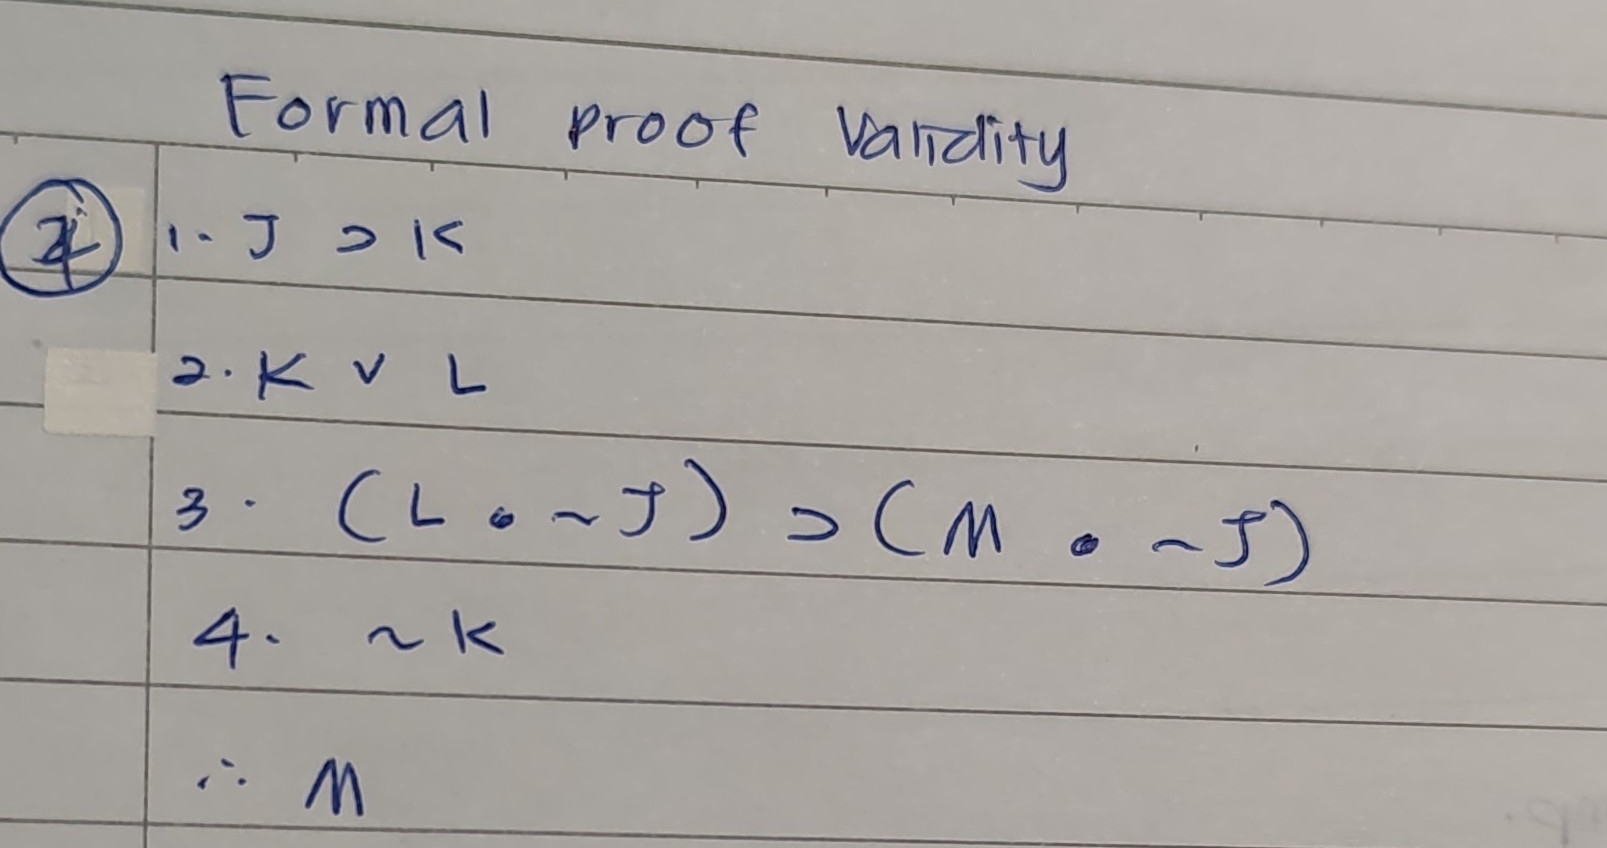 Formal proof Validity
1. J ⊃ K
2. K v L
3. (L • ~J) ⊃ (M • ~J)
4. ~K
∴ M